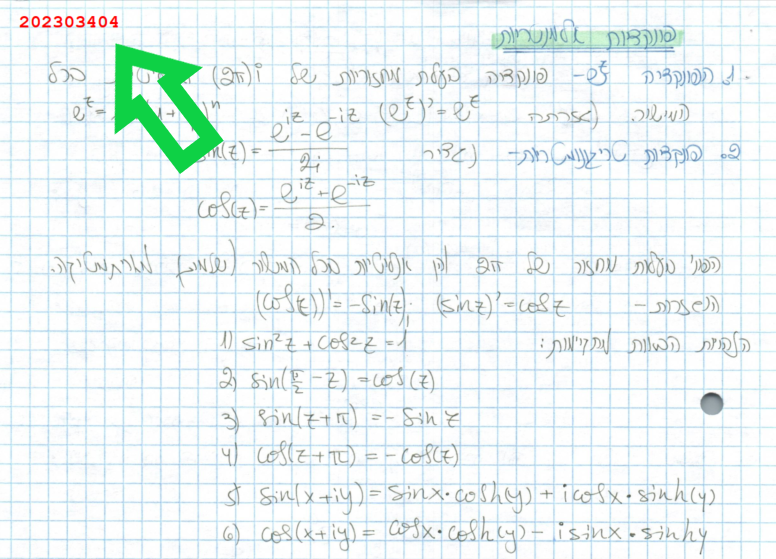 202303404
פונקציות אלמנטריות
1. הפונקציה e^z - פונקציה בעלת מחזוריות של (2π)i בכל
המישור. נגזרתה (e^z)' = e^z e^z =
2. פונקציות טריגונומטריות - נגדיר sin(z) = (e^{iz} - e^{-iz})/2i
cos(z) = (e^{iz} + e^{-iz})/2.
בעלות מחזור של 2π והן אנליטיות בכל המישור (שלמות)
הנגזרות - (sin z)' = cos z ; (cos z)' = -sin(z)
הזהויות הבאות מתקיימות: 1) sin²z + cos²z = 1
2) sin(π/2 - z) = cos(z)
3) sin(z+π) = -sin z
4) cos(z+π) = -cos(z)
5) sin(x+iy) = sinx·cosh(y) + icosx·sinh(y)
6) cos(x+iy) = cosx·cosh(y) - isinx·sinhy